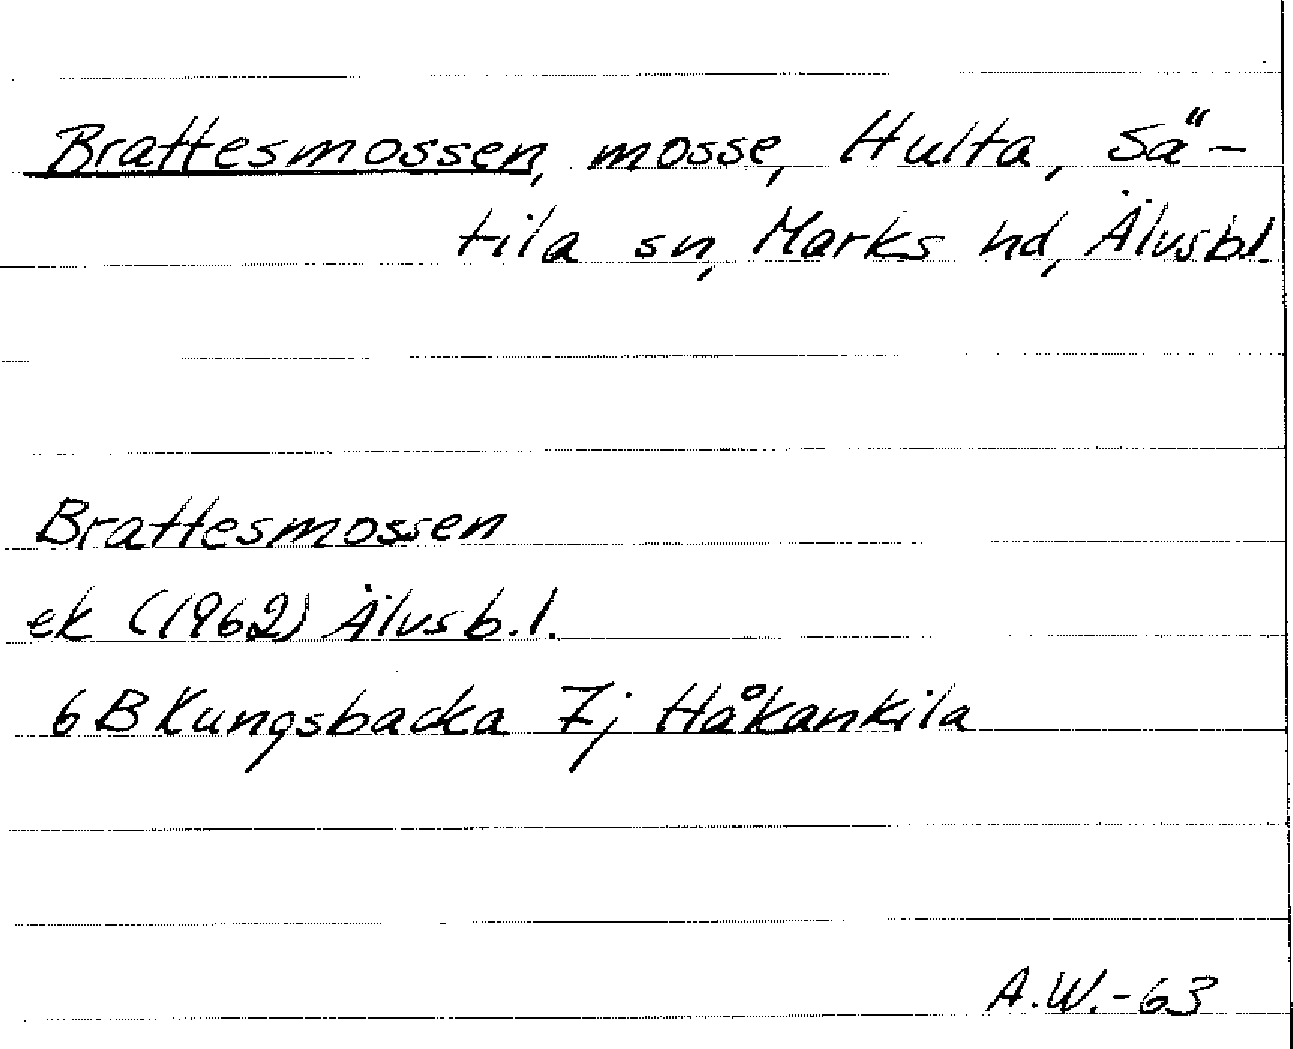 Brattesmossen, mosse, Hulta, Sä-
tila sn, Marks hd, Älvsbl.
Brattesmossen
ek (1962) Älvsb.l.
6B Kungsbacka 7j Håkankila
A.W.-63